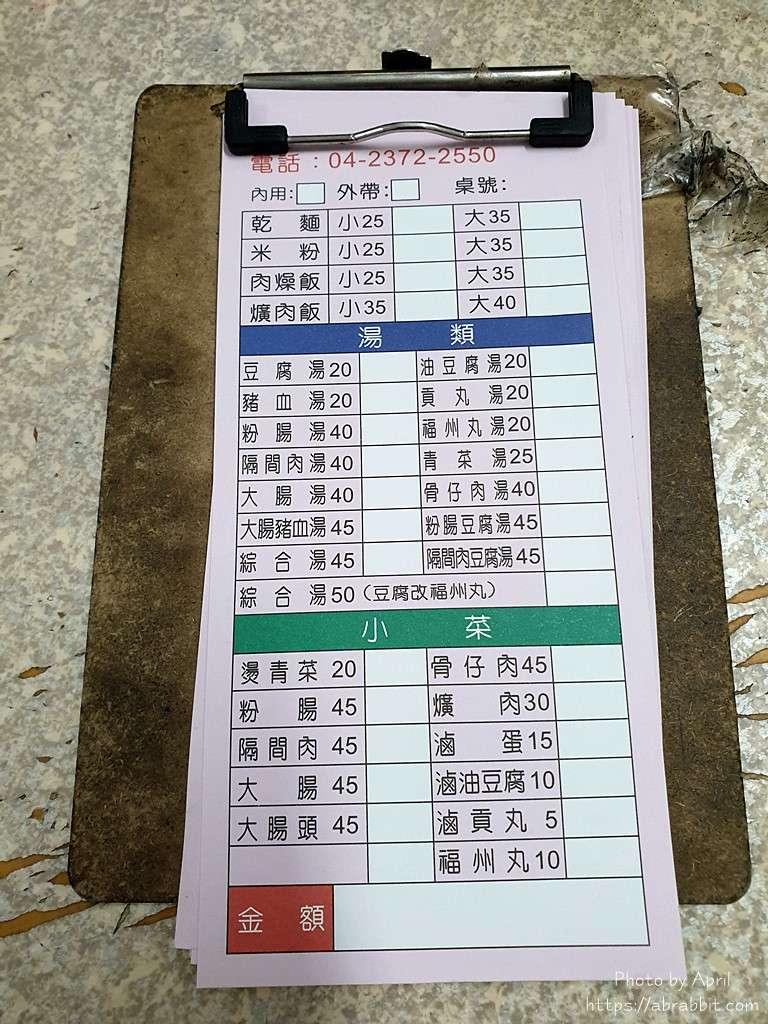 電話：04-2372-2550
內用： 外帶： 桌號：
乾麵 小25 大35
米粉 小25 大35
肉燥飯 小25 大35
爌肉飯 小35 大40
湯類
豆腐湯20 油豆腐湯20
豬血湯20 貢丸湯20
粉腸湯40 福州丸湯20
隔間肉湯40 青菜湯25
大腸湯40 骨仔肉湯40
大腸豬血湯45 粉腸豆腐湯45
綜合湯45 隔間肉豆腐湯45
綜合湯50（豆腐改福州丸）
小菜
燙青菜 20 骨仔肉45
粉腸 45 爌肉30
隔間肉 45 滷蛋15
大腸 45 滷油豆腐10
大腸頭 45 滷貢丸 5
福州丸10
金額
Photo by April
https://abrabbit.com